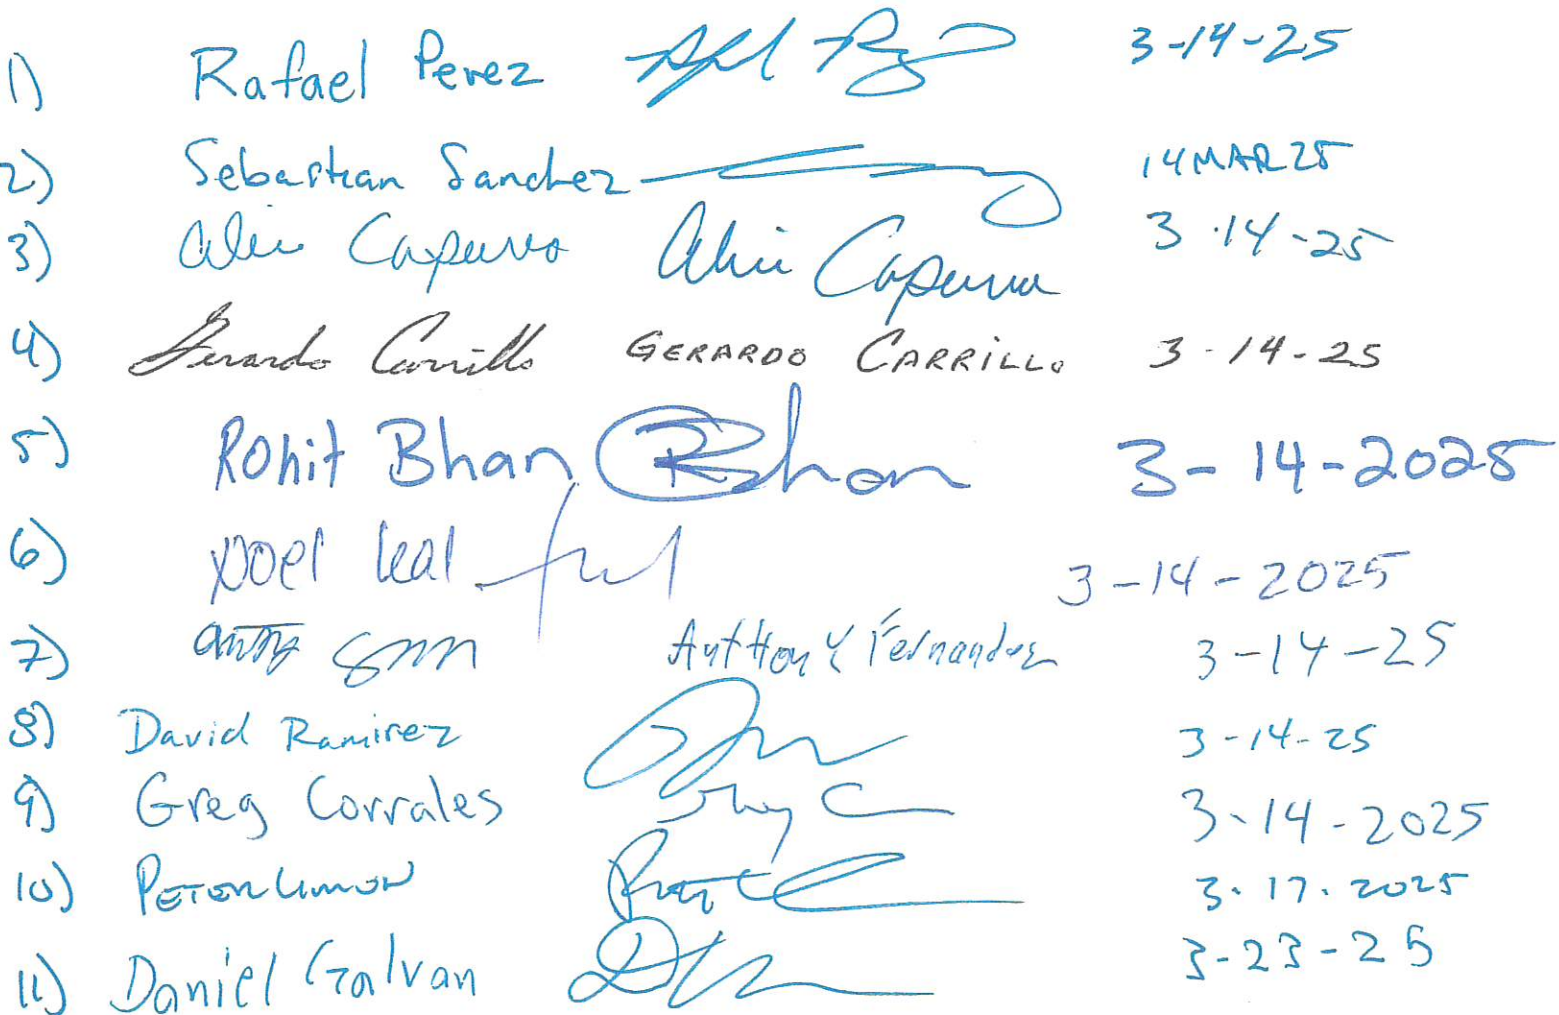 1) Rafael Perez 3-14-25
2) Sebastian Sanchez 14MAR25
3) 3-14-25
4) Gerardo Carrillo GERARDO CARRILLO 3-14-25
5) Rohit Bhan Bhan 3-14-2025
6) leal 3-14-2025
7) Anthony Fernandez 3-14-25
8) David Ramirez 3-14-25
9) Greg Corrales 3-14-2025
10) PETER LIMON 3.17.2025
11) Daniel Galvan 3-23-25